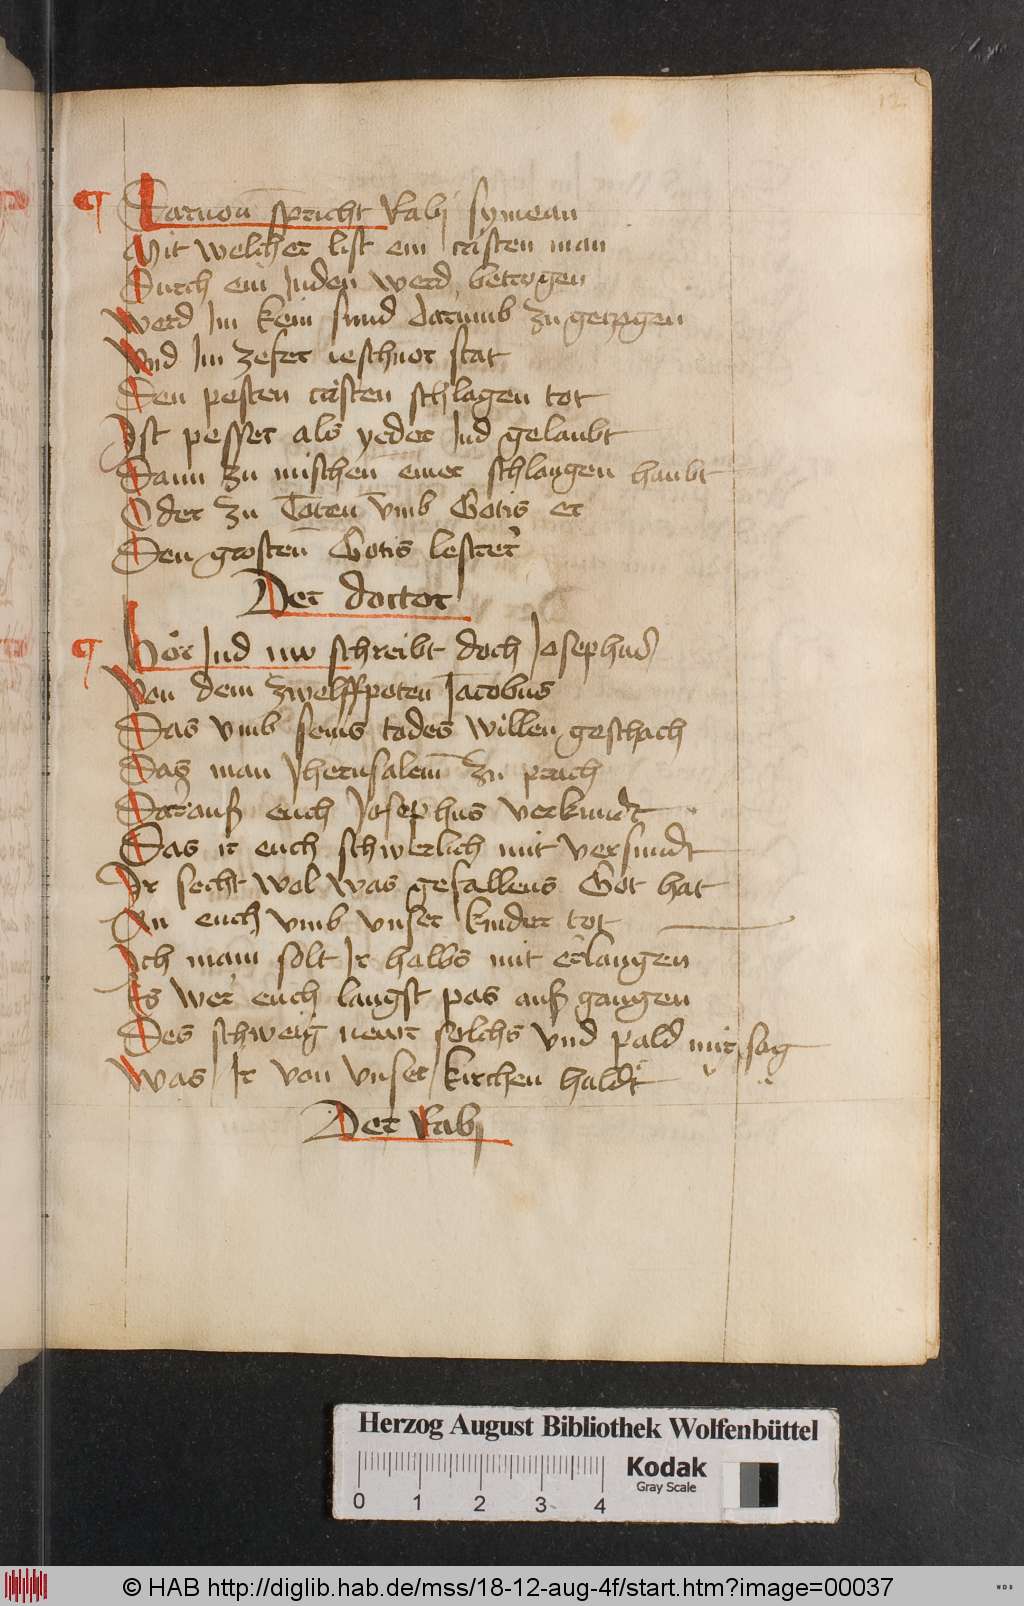 12
Daruon spricht Rabi symean
Mit welcher list ein cristen man
Durch ein Juden werd betrogen
Werd Im kein sund darumb zu getzogen
Vnd Im zefer ieschuot stat
Den pesten cristen schlagen tot
Ist pesser als yeder Jud gelaubt
Dann zu mischen einer schlangen haubt
Oder zu Toten vmb Gotis er
Den grosten Gotis lestrer
Der doctor
Hör Jud nw schreibt doch Josephus
Von dem zwelffpoten Jacobus
Das vmb seins todes willen geschach
Das man Jherusalem zu prach
Darauß euch Josephus verkundt
Das ir euch schwerlich mit versundt
Ir secht wol was gefallens Got hat
An euch vmb vnser kinder tot
Ich main solt Ir halbs mit erlangen
Es wer euch langst pas auß gangen
Des schweig newr solchs vnd pald mir sag
Was Ir von vnser kirchen haldt
Der Rabi
Herzog August Bibliothek Wolfenbüttel
0 1 2 3 4
Kodak
Gray Scale
© HAB http://diglib.hab.de/mss/18-12-aug-4f/start.htm?image=00037